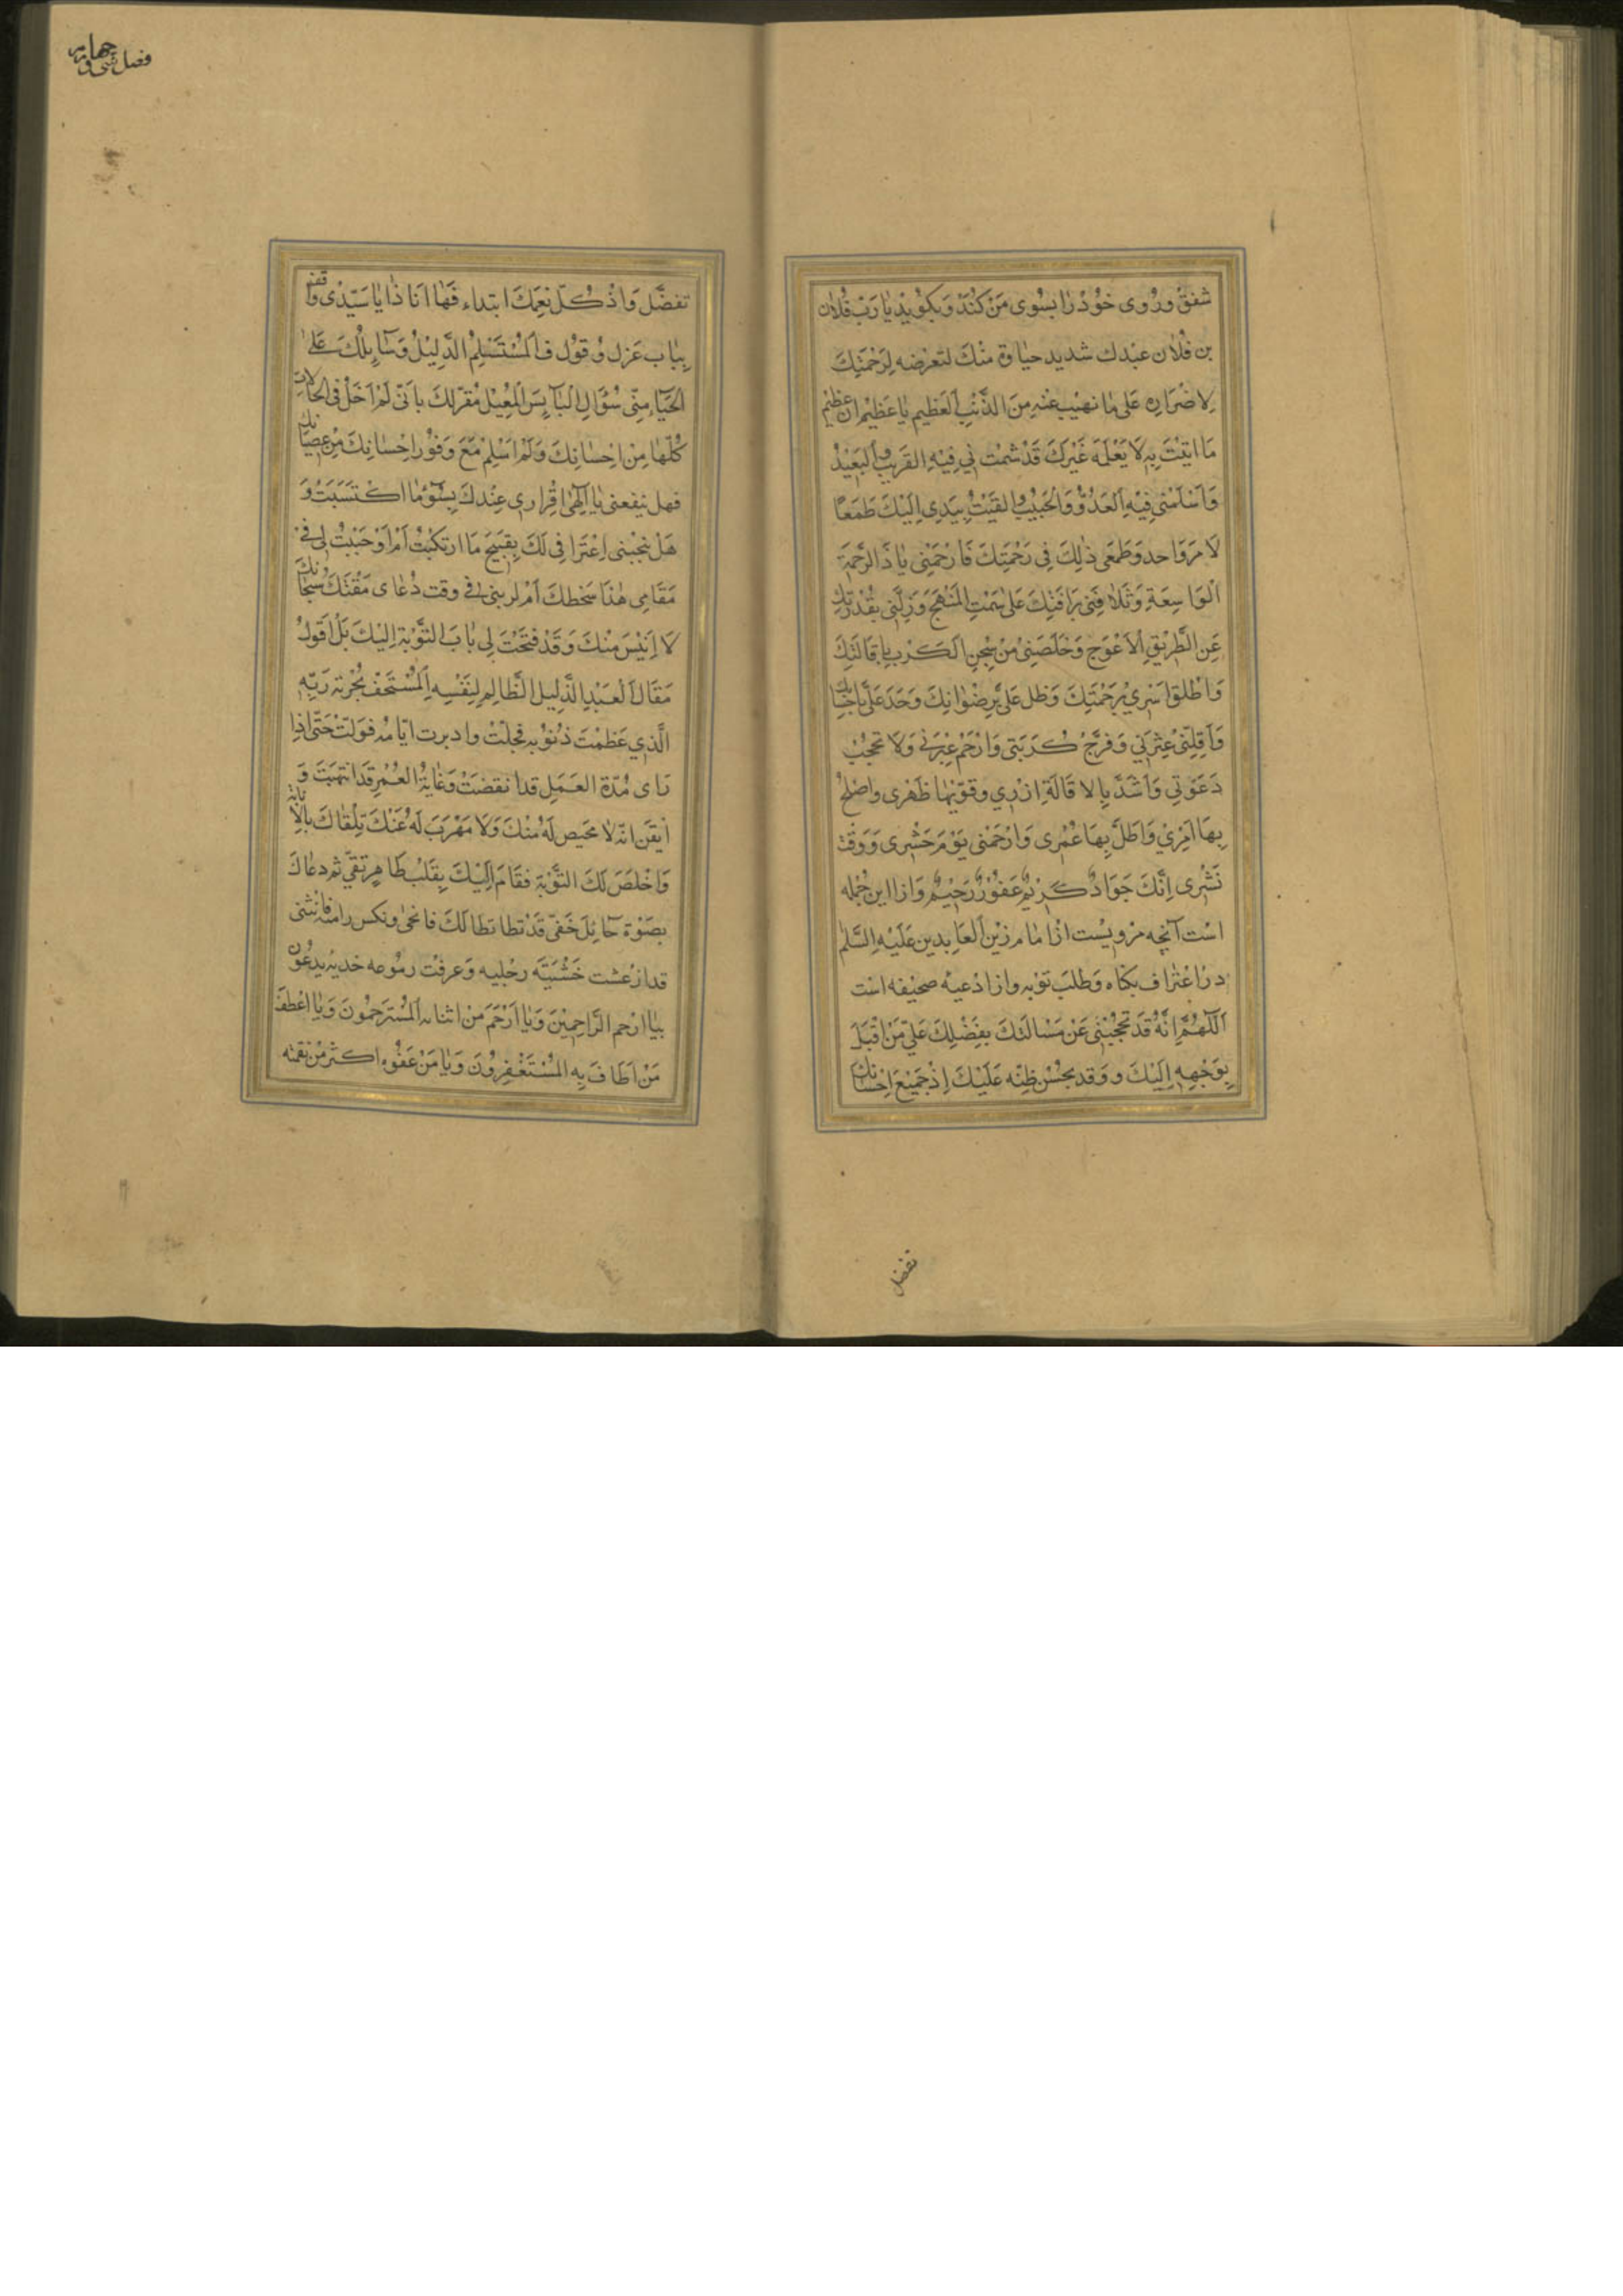 شفق و روی خود را بسوی من کند و بکوید یا رب فلان
بن فلان عبدك شدید حیاوة منك لتعرضه لرحمتك
لاضراره علی ما نهیب عنه من الذنب العظیم یا عظیم ان عظیم
ما اتیت به لا یعلمه غیرك قد شمت نی فیه القریب والبعید
واسلمنی فیه العدو والحبیب والقیت بیدی الیك طمعا
لامر واحد وطمعی ذلك فی رحمتك فارحمنی یا ذا الرحمة
الواسعة وتلافنی برافتك علی سمت المنهج وزلنی بقدرتك
عن الطریق الاعوج وخلصنی من سجن الکرب باقالتك
واطلق اسری برحمتك وظل علی برضوانك وحد علی باحسانك
واقلنی عثرتی وفرج کربتی وارحم عبرتی ولا تحجب
دعوتی واشدد بالاقالة ازری وقو بها ظهری واصلح
بها امری واطل بها عمری وارحمنی یوم حشری ووقت
نشری انك جواد کریم غفور رحیم واز این جمله
است آنچه مرویست از امام زین العابدین علیه السلم
در اعتراف بکناه وطلب توبه واز ادعیه صحیفه است
اللهم انه قد تحجبنی عن مسالتك بفضلك علی من اقبل
بوجهه الیك و وقد بحسن ظنه علیك اذ جمیع احسانك
تفضل
فصل سی و چهارم
تفضل واذ کل نعمك ابتداء فها انا ذا یا سیدی واقف
بباب عزل وقوف المستسلم الذلیل وسایلك علی
الحیاء منی سؤال البایس المعیل مقر لك بانی لم اخل فی الحالات
کلها من احسانك ولم اسلم مع وفور احسانك من عصیانك
فهل ینفعنی یا الهی اقراری عندك بسوء ما اکتسبت و
هل ینجینی اعترافی لك بقبیح ما ارتکبت ام اوجبت لی فی
مقامی هذا سخطك ام لزمنی فی وقت دعای مقتك سبحانك
لا ائیس منك وقد فتحت لی باب التوبة الیك بل اقول
مقال العبد الذلیل الظالم لنفسه المستخف بحرمة ربه
الذی عظمت ذنوبه فجلت وادبرت ایامه فولت حتی اذا
رای مدة العمل قد انقضت وغایة العمر قد انتهت و
ایقن انه لا محیص له منك ولا مهرب له عنك تلقاك بالانابة
واخلص لك التوبة فقام الیك بقلب طاهر نقی ثم دعاك
بصوة حائل خفی قد تطاتطا لك فانحنی ونکس راسه فانثنی
قد ارعشت خشیته رجلیه وعرفت دموعه خدیه یدعوك
بیا ارحم الراحمین ویا ارحم من انتابه المسترحمون ویا اعطف
من اطاف به المستغفرون ویا من عفوه اکثر من نقمته